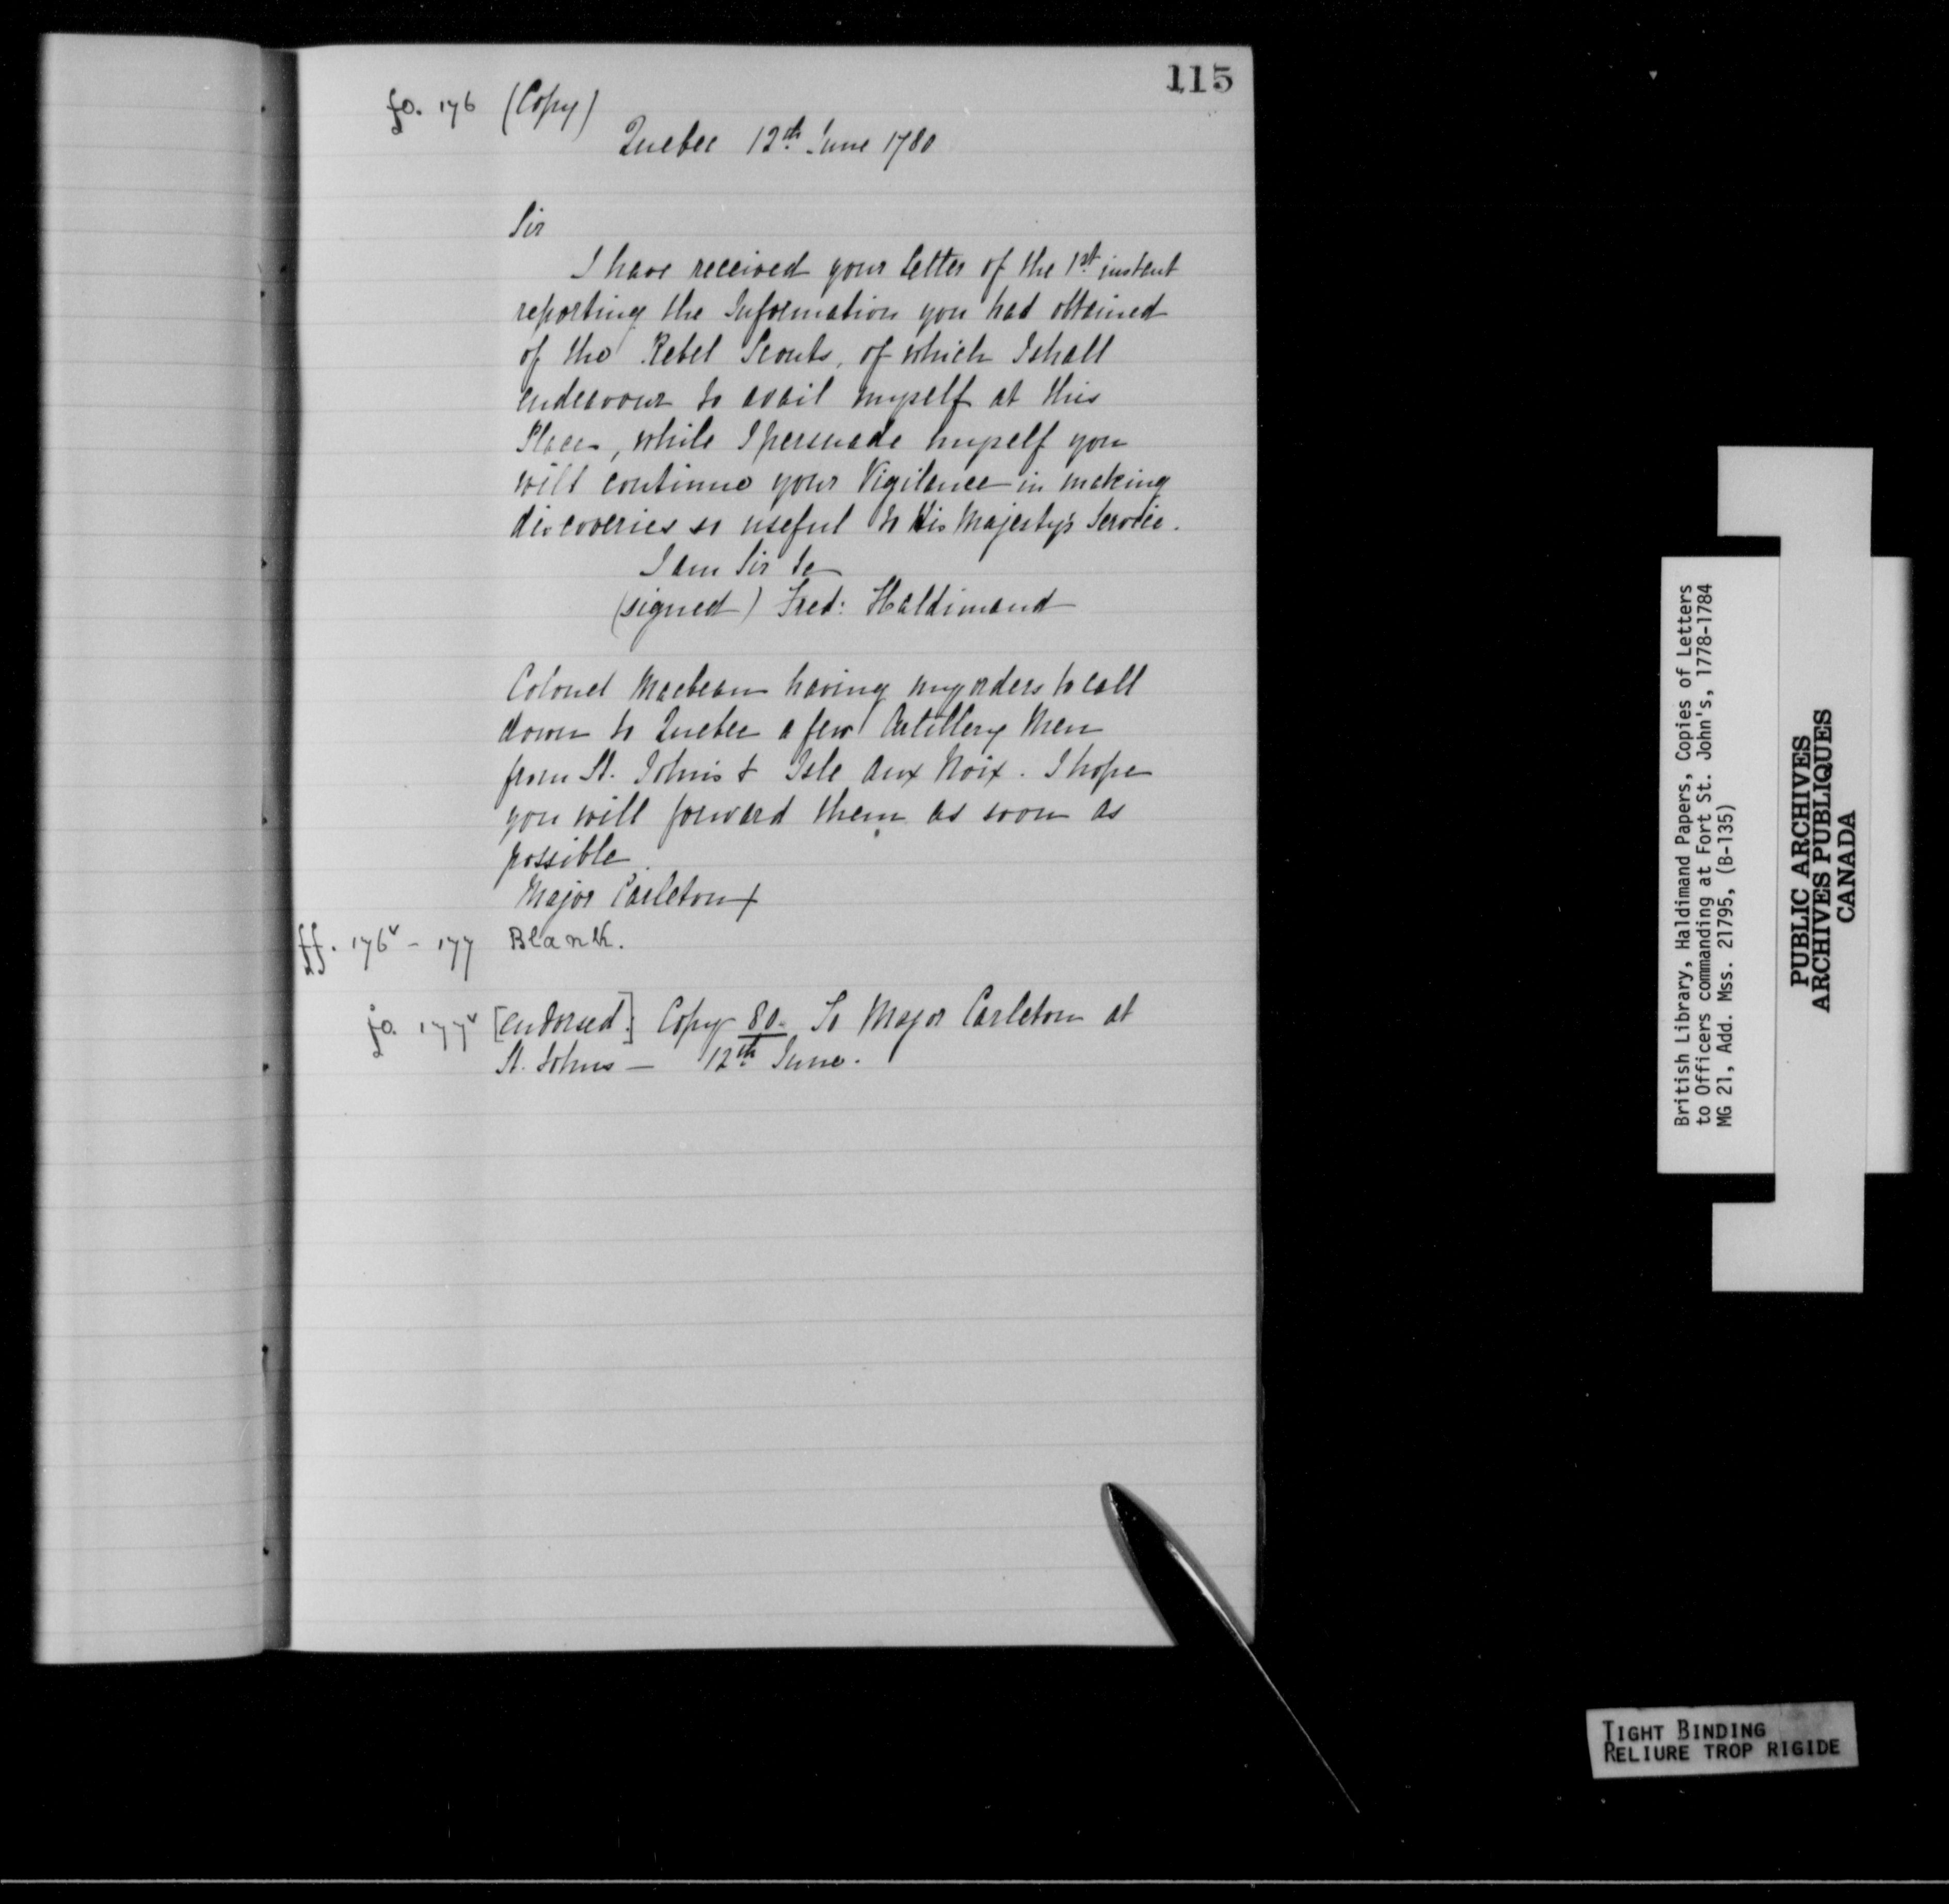 115
fo. 176 (Copy)
Quebec 12th June 1780
Sir
I have received your letter of the 1st instant
reporting the Information you had obtained
of the Rebel Scouts, of which I shall
endeavour to avail myself at this
Place, while I persuade myself you
will continue your Vigilance in making
discoveries so useful to His Majesty's Service.
I am Sir &c
(signed) Fred: Haldimand
Colonel Macbean having my orders to call
down to Quebec a few Artillery Men
from St. John's & Isle Aux Noix. I hope
you will forward them as soon as
possible.
Major Carleton
ff. 176v - 177 Blank.
fo. 177v [endorsed:] Copy 80. To Major Carleton at
St. Johns — 12th June.
British Library, Haldimand Papers, Copies of Letters
to Officers commanding at Fort St. John's, 1778-1784
MG 21, Add. Mss. 21795, (B-135)
PUBLIC ARCHIVES
ARCHIVES PUBLIQUES
CANADA
TIGHT BINDING
RELIURE TROP RIGIDE